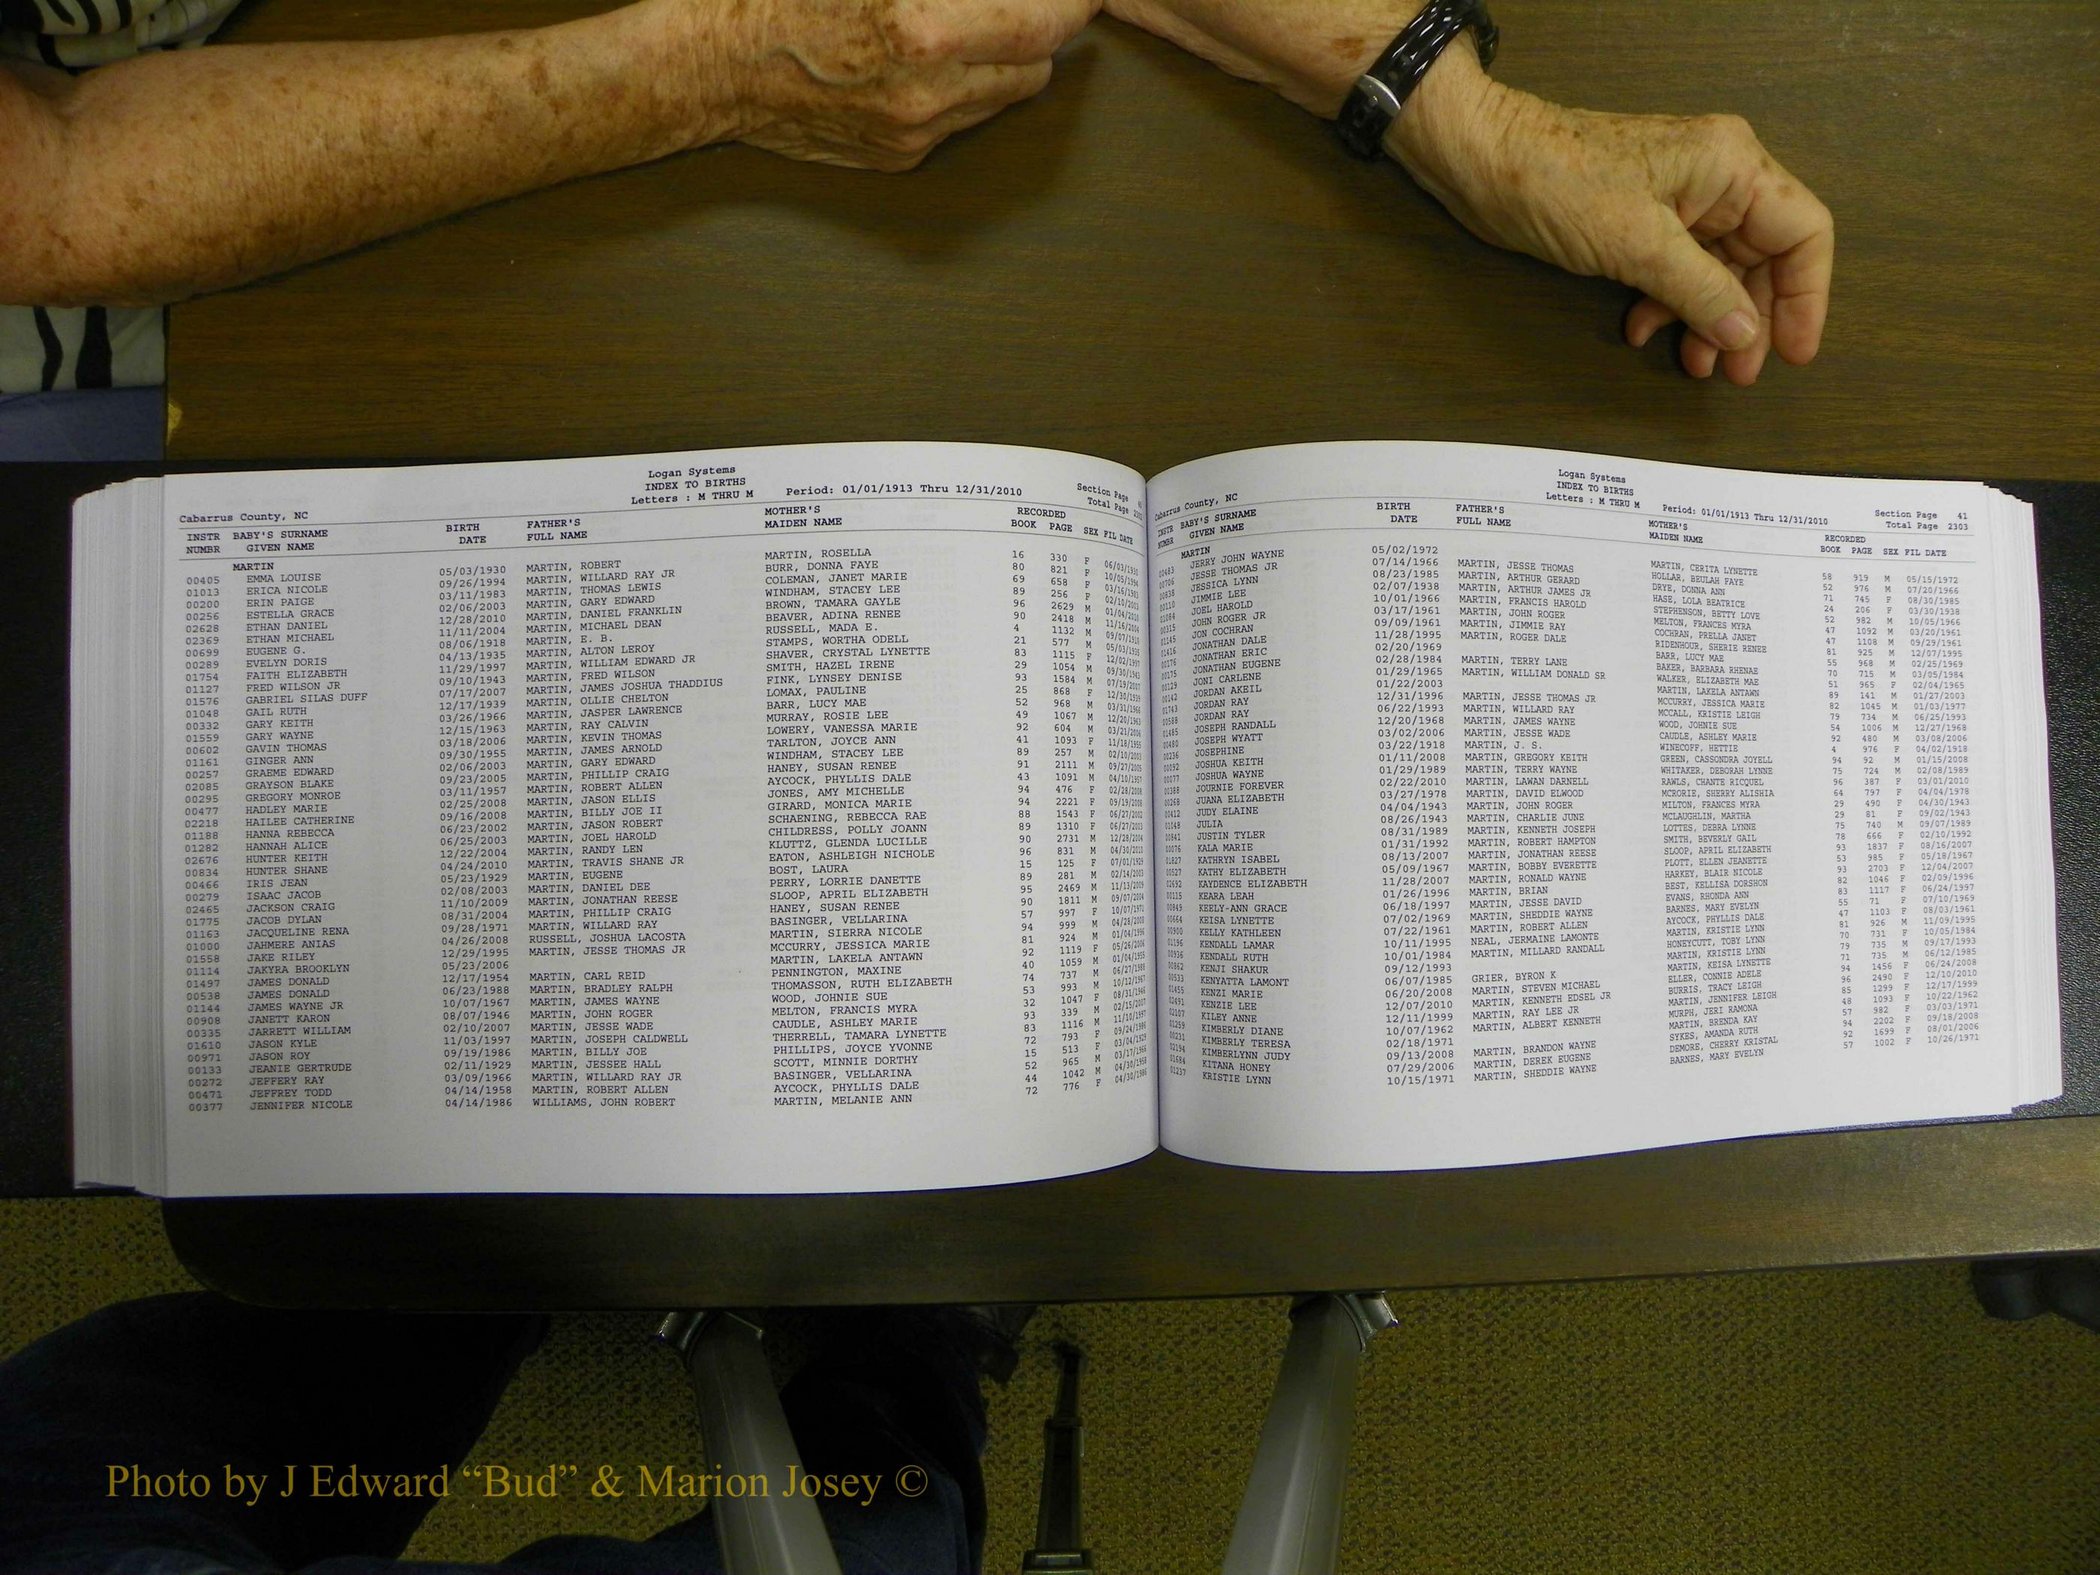 Logan Systems
INDEX TO BIRTHS
Cabarrus County, NC Letters : M THRU M Period: 01/01/1913 Thru 12/31/2010 Section Page
Total Page
INSTR BABY'S SURNAME BIRTH FATHER'S MOTHER'S RECORDED
NUMBR GIVEN NAME DATE FULL NAME MAIDEN NAME BOOK PAGE SEX FIL DATE
MARTIN
00405 EMMA LOUISE 05/03/1930 MARTIN, ROBERT MARTIN, ROSELLA 16 330 F 06/03/1930
01013 ERICA NICOLE 09/26/1994 MARTIN, WILLARD RAY JR BURR, DONNA FAYE 80 821 F 10/05/1994
00200 ERIN PAIGE 03/11/1983 MARTIN, THOMAS LEWIS COLEMAN, JANET MARIE 69 658 F 03/16/1983
00256 ESTELLA GRACE 02/06/2003 MARTIN, GARY EDWARD WINDHAM, STACEY LEE 89 256 F 02/10/2003
02628 ETHAN DANIEL 12/28/2010 MARTIN, DANIEL FRANKLIN BROWN, TAMARA GAYLE 96 2629 M
02369 ETHAN MICHAEL 11/11/2004 MARTIN, MICHAEL DEAN BEAVER, ADINA RENEE 90 2418 M 11/16/2004
00699 EUGENE G. 08/06/1918 MARTIN, E. B. RUSSELL, MADA E. 4 1132 M 09/07/1918
00289 EVELYN DORIS 04/13/1935 MARTIN, ALTON LEROY STAMPS, WORTHA ODELL 21 577 05/03/1935
01754 FAITH ELIZABETH 11/29/1997 MARTIN, WILLIAM EDWARD JR SHAVER, CRYSTAL LYNETTE 83 1115 F 12/02/1997
01127 FRED WILSON JR 09/10/1943 MARTIN, FRED WILSON SMITH, HAZEL IRENE 29 1054 M 09/30/1943
01576 GABRIEL SILAS DUFF 07/17/2007 MARTIN, JAMES JOSHUA THADDIUS FINK, LYNSEY DENISE 93 1584 M 07/19/2007
01048 GAIL RUTH 12/17/1939 MARTIN, OLLIE CHELTON LOMAX, PAULINE 25 868 F 12/30/1939
00332 GARY KEITH 03/26/1966 MARTIN, JASPER LAWRENCE BARR, LUCY MAE 52 968 M 03/31/1966
01559 GARY WAYNE 12/15/1963 MARTIN, RAY CALVIN MURRAY, ROSIE LEE 49 1067 M 12/20/1963
00602 GAVIN THOMAS 03/18/2006 MARTIN, KEVIN THOMAS LOWERY, VANESSA MARIE 92 604 M 03/21/2006
01161 GINGER ANN 09/30/1955 MARTIN, JAMES ARNOLD TARLTON, JOYCE ANN 41 1093 F 11/18/1955
00257 GRAEME EDWARD 02/06/2003 MARTIN, GARY EDWARD WINDHAM, STACEY LEE 89 257 M 02/10/2003
02085 GRAYSON BLAKE 09/23/2005 MARTIN, PHILLIP CRAIG HANEY, SUSAN RENEE 91 2111 M 09/27/2005
00295 GREGORY MONROE 03/11/1957 MARTIN, ROBERT ALLEN AYCOCK, PHYLLIS DALE 43 1091 M 04/10/1957
00477 HADLEY MARIE 02/25/2008 MARTIN, JASON ELLIS JONES, AMY MICHELLE 94 476 F 02/28/2008
02218 HAILEE CATHERINE 09/16/2008 MARTIN, BILLY JOE II GIRARD, MONICA MARIE 94 2221 F 09/19/2008
01188 HANNA REBECCA 06/23/2002 MARTIN, JASON ROBERT SCHAENING, REBECCA RAE 88 1543 F 06/27/2002
01282 HANNAH ALICE 06/25/2003 MARTIN, JOEL HAROLD CHILDRESS, POLLY JOANN 89 1310 F 06/27/2003
02676 HUNTER KEITH 12/22/2004 MARTIN, RANDY LEN KLUTTZ, GLENDA LUCILLE 90 2731 M 12/28/2004
00834 HUNTER SHANE 04/24/2010 MARTIN, TRAVIS SHANE JR EATON, ASHLEIGH NICHOLE 96 831 M 04/30/2010
00466 IRIS JEAN 05/23/1929 MARTIN, EUGENE BOST, LAURA 15 125 F 07/01/1929
00279 ISAAC JACOB 02/08/2003 MARTIN, DANIEL DEE PERRY, LORRIE DANETTE 89 281 M 02/14/2003
02465 JACKSON CRAIG 11/10/2009 MARTIN, JONATHAN REESE SLOOP, APRIL ELIZABETH 95 2469 M 11/13/2009
01775 JACOB DYLAN 08/31/2004 MARTIN, PHILLIP CRAIG HANEY, SUSAN RENEE 90 1811 M 09/07/2004
01163 JACQUELINE RENA 09/28/1971 MARTIN, WILLARD RAY BASINGER, VELLARINA 57 997 F 10/07/1971
01000 JAHMERE ANIAS 04/26/2008 RUSSELL, JOSHUA LACOSTA MARTIN, SIERRA NICOLE 94 999 M 04/28/2008
01558 JAKE RILEY 12/29/1995 MARTIN, JESSE THOMAS JR MCCURRY, JESSICA MARIE 81 924 M 01/04/1996
01114 JAKYRA BROOKLYN 05/23/2006 MARTIN, LAKELA ANTAWN 92 1119 F 05/26/2006
01497 JAMES DONALD 12/17/1954 MARTIN, CARL REID PENNINGTON, MAXINE 40 1059 M 01/04/1955
00538 JAMES DONALD 06/23/1988 MARTIN, BRADLEY RALPH THOMASSON, RUTH ELIZABETH 74 737 M 06/27/1988
01144 JAMES WAYNE JR 10/07/1967 MARTIN, JAMES WAYNE WOOD, JOHNIE SUE 53 993 M 10/12/1967
00908 JANETT KARON 08/07/1946 MARTIN, JOHN ROGER MELTON, FRANCIS MYRA 32 1047 F 08/31/1946
00335 JARRETT WILLIAM 02/10/2007 MARTIN, JESSE WADE CAUDLE, ASHLEY MARIE 93 339 M 02/15/2007
01610 JASON KYLE 11/03/1997 MARTIN, JOSEPH CALDWELL THERRELL, TAMARA LYNETTE 83 1116 M 11/10/1997
00971 JASON ROY 09/19/1986 MARTIN, BILLY JOE PHILLIPS, JOYCE YVONNE 72 793 F 09/24/1986
00133 JEANIE GERTRUDE 02/11/1929 MARTIN, JESSEE HALL SCOTT, MINNIE DORTHY 15 513 F 03/04/1929
00272 JEFFERY RAY 03/09/1966 MARTIN, WILLARD RAY JR BASINGER, VELLARINA 52 965 M 03/17/1966
00471 JEFFREY TODD 04/14/1958 MARTIN, ROBERT ALLEN AYCOCK, PHYLLIS DALE 44 1042 M 04/30/1958
00377 JENNIFER NICOLE 04/14/1986 WILLIAMS, JOHN ROBERT MARTIN, MELANIE ANN 72 776 F 04/30/1986
Logan Systems
INDEX TO BIRTHS
Cabarrus County, NC Letters : M THRU M Period: 01/01/1913 Thru 12/31/2010 Section Page 41
Total Page 2303
INSTR BABY'S SURNAME BIRTH FATHER'S MOTHER'S RECORDED
NUMBR GIVEN NAME DATE FULL NAME MAIDEN NAME BOOK PAGE SEX FIL DATE
MARTIN
00483 JERRY JOHN WAYNE 05/02/1972 MARTIN, CERITA LYNETTE 58 919 M 05/15/1972
00706 JESSE THOMAS JR 07/14/1966 MARTIN, JESSE THOMAS HOLLAR, BEULAH FAYE 52 976 M 07/20/1966
00838 JESSICA LYNN 08/23/1985 MARTIN, ARTHUR GERARD DRYE, DONNA ANN 71 745 F 08/30/1985
00110 JIMMIE LEE 02/07/1938 MARTIN, ARTHUR JAMES JR HASE, LOLA BEATRICE 24 206 F 03/30/1938
01084 JOEL HAROLD 10/01/1966 MARTIN, FRANCIS HAROLD STEPHENSON, BETTY LOVE 52 982 M 10/05/1966
00315 JOHN ROGER JR 03/17/1961 MARTIN, JOHN ROGER MELTON, FRANCES MYRA 47 1092 M 03/20/1961
01145 JON COCHRAN 09/09/1961 MARTIN, JIMMIE RAY COCHRAN, PRELLA JANET 47 1108 M 09/29/1961
01416 JONATHAN DALE 11/28/1995 MARTIN, ROGER DALE RIDENHOUR, SHERIE RENEE 81 925 M 12/07/1995
00176 JONATHAN ERIC 02/20/1969 BARR, LUCY MAE 55 968 M 02/25/1969
00175 JONATHAN EUGENE 02/28/1984 MARTIN, TERRY LANE BAKER, BARBARA RHENAE 70 715 M 03/05/1984
00129 JONI CARLENE 01/29/1965 MARTIN, WILLIAM DONALD SR WALKER, ELIZABETH MAE 51 965 F 02/04/1965
00142 JORDAN AKEIL 01/22/2003 MARTIN, LAKELA ANTAWN 89 141 M 01/27/2003
01743 JORDAN RAY 12/31/1996 MARTIN, JESSE THOMAS JR MCCURRY, JESSICA MARIE 82 1045 M 01/03/1977
00588 JORDAN RAY 06/22/1993 MARTIN, WILLARD RAY MCCALL, KRISTIE LEIGH 79 734 M 06/25/1993
01485 JOSEPH RANDALL 12/20/1968 MARTIN, JAMES WAYNE WOOD, JOHNIE SUE 54 1006 M 12/27/1968
00480 JOSEPH WYATT 03/02/2006 MARTIN, JESSE WADE CAUDLE, ASHLEY MARIE 92 480 M 03/08/2006
00236 JOSEPHINE 03/22/1918 MARTIN, J. S. WINECOFF, HETTIE 4 976 F 04/02/1918
00092 JOSHUA KEITH 01/11/2008 MARTIN, GREGORY KEITH GREEN, CASSONDRA JOYELL 94 92 M 01/15/2008
00077 JOSHUA WAYNE 01/29/1989 MARTIN, TERRY WAYNE WHITAKER, DEBORAH LYNNE 75 724 M 02/08/1989
00388 JOURNIE FOREVER 02/22/2010 MARTIN, LAWAN DARNELL RAWLS, CHANTE RICQUEL 96 387 F 03/01/2010
00268 JUANA ELIZABETH 03/27/1978 MARTIN, DAVID ELWOOD MCRORIE, SHERRY ALISHIA 64 797 F 04/04/1978
00412 JUDY ELAINE 04/04/1943 MARTIN, JOHN ROGER MILTON, FRANCES MYRA 29 490 F 04/30/1943
01048 JULIA 08/26/1943 MARTIN, CHARLIE JUNE MCLAUGHLIN, MARTHA 29 81 F 09/02/1943
00841 JUSTIN TYLER 08/31/1989 MARTIN, KENNETH JOSEPH LOTTES, DEBRA LYNNE 75 740 M 09/07/1989
00076 KALA MARIE 01/31/1992 MARTIN, ROBERT HAMPTON SMITH, BEVERLY GAIL 78 666 F 02/10/1992
01827 KATHRYN ISABEL 08/13/2007 MARTIN, JONATHAN REESE SLOOP, APRIL ELIZABETH 93 1837 F 08/16/2007
00527 KATHY ELIZABETH 05/09/1967 MARTIN, BOBBY EVERETTE PLOTT, ELLEN JEANETTE 53 985 F 05/18/1967
02692 KAYDENCE ELIZABETH 11/28/2007 MARTIN, RONALD WAYNE HARKEY, BLAIR NICOLE 93 2703 F 12/04/2007
00115 KEARA LEAH 01/26/1996 MARTIN, BRIAN BEST, KELLISA DORSHON 82 1046 F 02/09/1996
00849 KEELY-ANN GRACE 06/18/1997 MARTIN, JESSE DAVID EVANS, RHONDA ANN 83 1117 F 06/24/1997
00664 KEISA LYNETTE 07/02/1969 MARTIN, SHEDDIE WAYNE BARNES, MARY EVELYN 55 71 F 07/10/1969
00900 KELLY KATHLEEN 07/22/1961 MARTIN, ROBERT ALLEN AYCOCK, PHYLLIS DALE 47 1103 F 08/03/1961
01196 KENDALL LAMAR 10/11/1995 NEAL, JERMAINE LAMONTE MARTIN, KRISTIE LYNN 81 926 M 11/09/1995
00936 KENDALL RUTH 10/01/1984 MARTIN, MILLARD RANDALL HONEYCUTT, TOBY LYNN 70 731 F 10/05/1984
00862 KENJI SHAKUR 09/12/1993 MARTIN, KRISTIE LYNN 79 735 M 09/17/1993
00533 KENYATTA LAMONT 06/07/1985 GRIER, BYRON K MARTIN, KEISA LYNETTE 71 735 M 06/12/1985
01455 KENZI MARIE 06/20/2008 MARTIN, STEVEN MICHAEL ELLER, CONNIE ADELE 94 1456 F 06/24/2008
02491 KENZIE LEE 12/07/2010 MARTIN, KENNETH EDSEL JR BURRIS, TRACY LEIGH 96 2490 F 12/10/2010
02107 KILEY ANNE 12/11/1999 MARTIN, RAY LEE JR MARTIN, JENNIFER LEIGH 85 1299 F 12/17/1999
01259 KIMBERLY DIANE 10/07/1962 MARTIN, ALBERT KENNETH MURPH, JERI RAMONA 48 1093 F 10/22/1962
00231 KIMBERLY TERESA 02/18/1971 MARTIN, BRENDA KAY 57 982 F 03/03/1971
02194 KIMBERLYNN JUDY 09/13/2008 MARTIN, BRANDON WAYNE SYKES, AMANDA RUTH 94 2202 F 09/18/2008
01684 KITANA HONEY 07/29/2006 MARTIN, DEREK EUGENE DEMORE, CHERRY KRISTAL 92 1699 F 08/01/2006
01237 KRISTIE LYNN 10/15/1971 MARTIN, SHEDDIE WAYNE BARNES, MARY EVELYN 57 1002 F 10/26/1971
Photo by J Edward “Bud” & Marion Josey ©